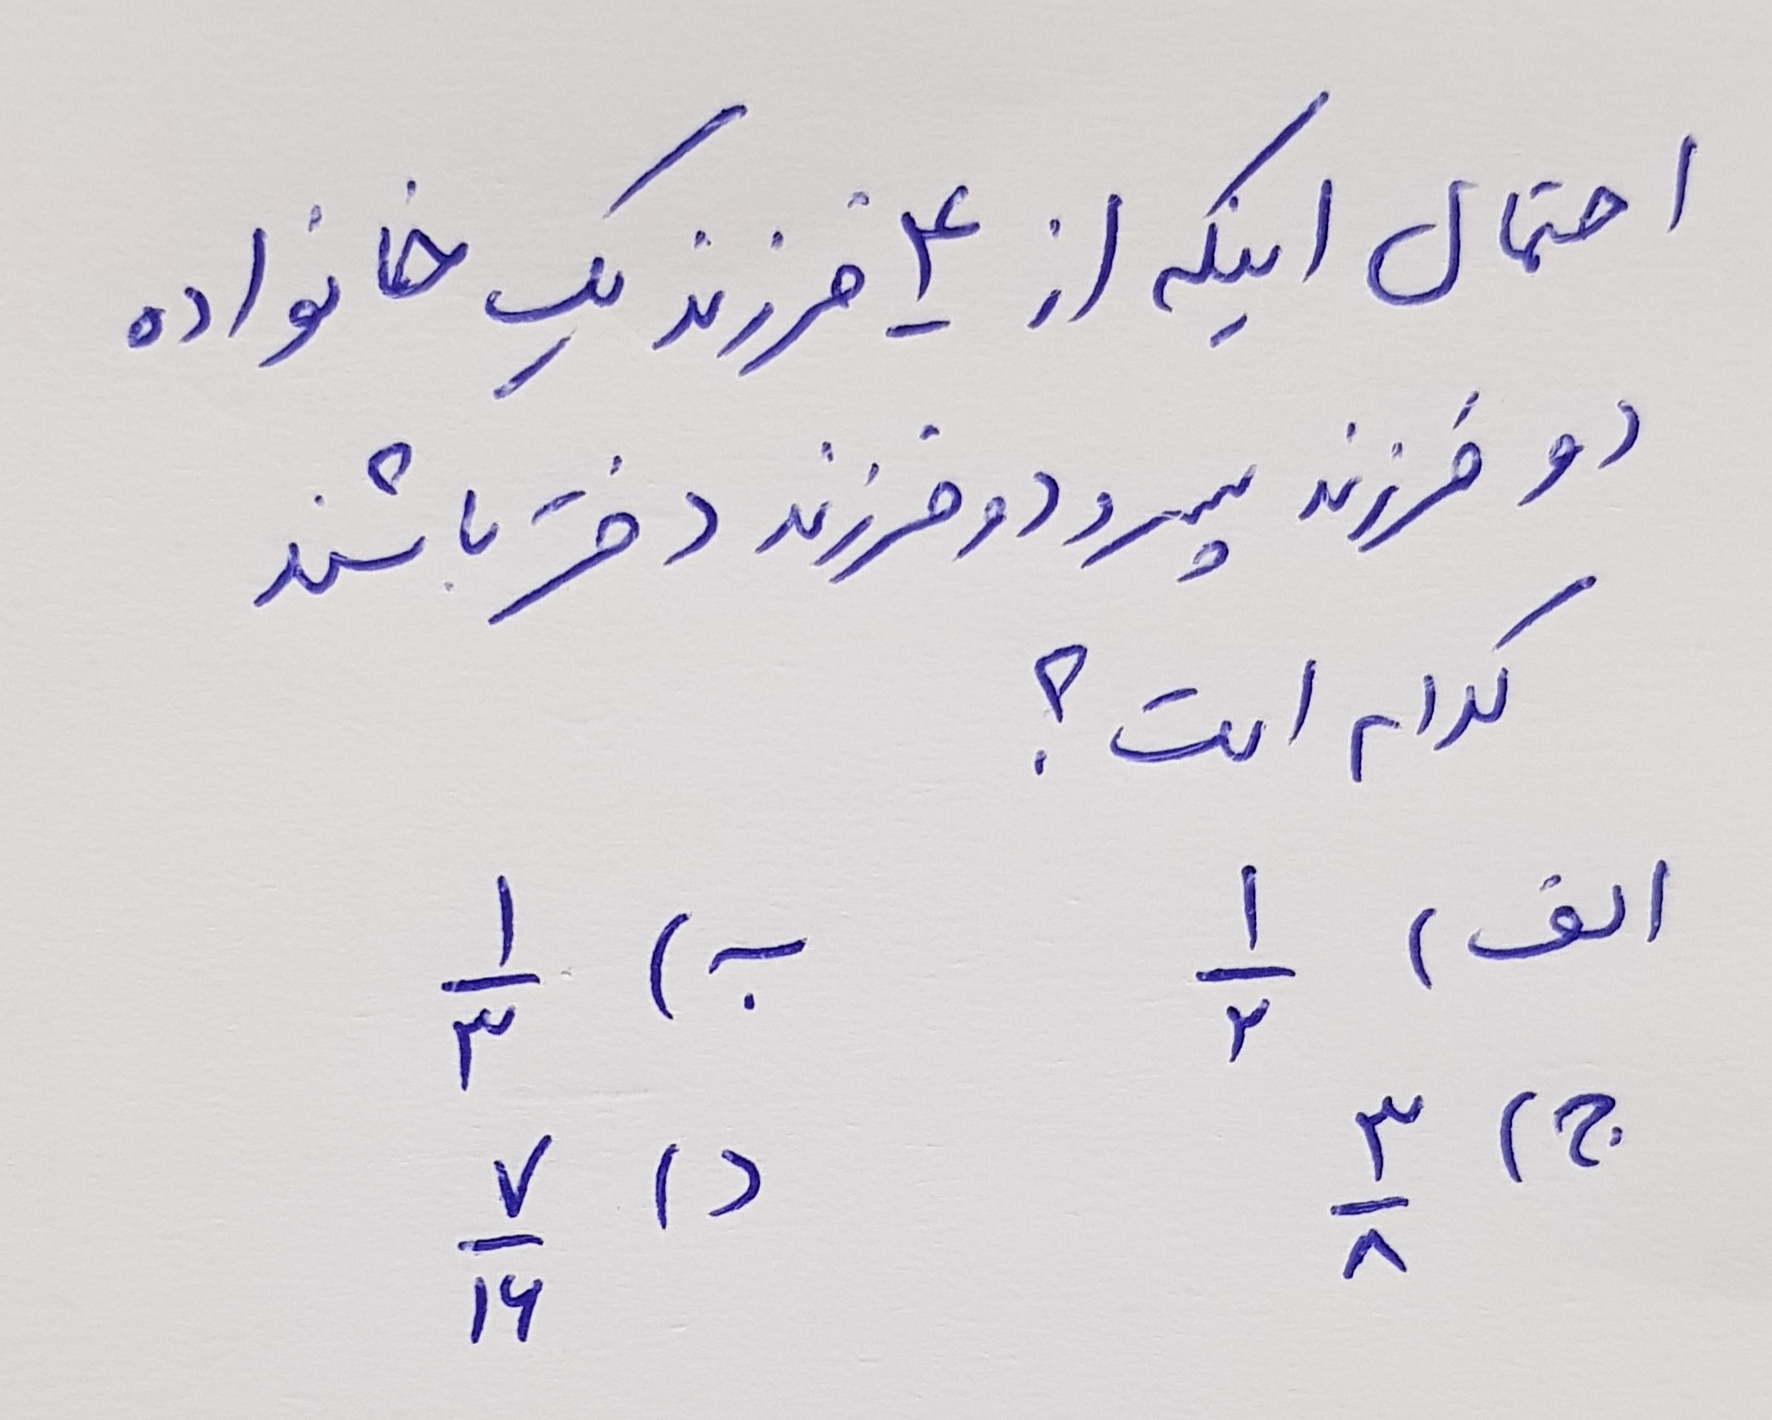 احتمال اینکه از ۴ فرزند یک خانواده
دو فرزند پسر و دو فرزند دختر باشند
کدام است؟
الف) ۱/۲ ب) ۱/۳
ج) ۳/۸ د) ۷/۱۶